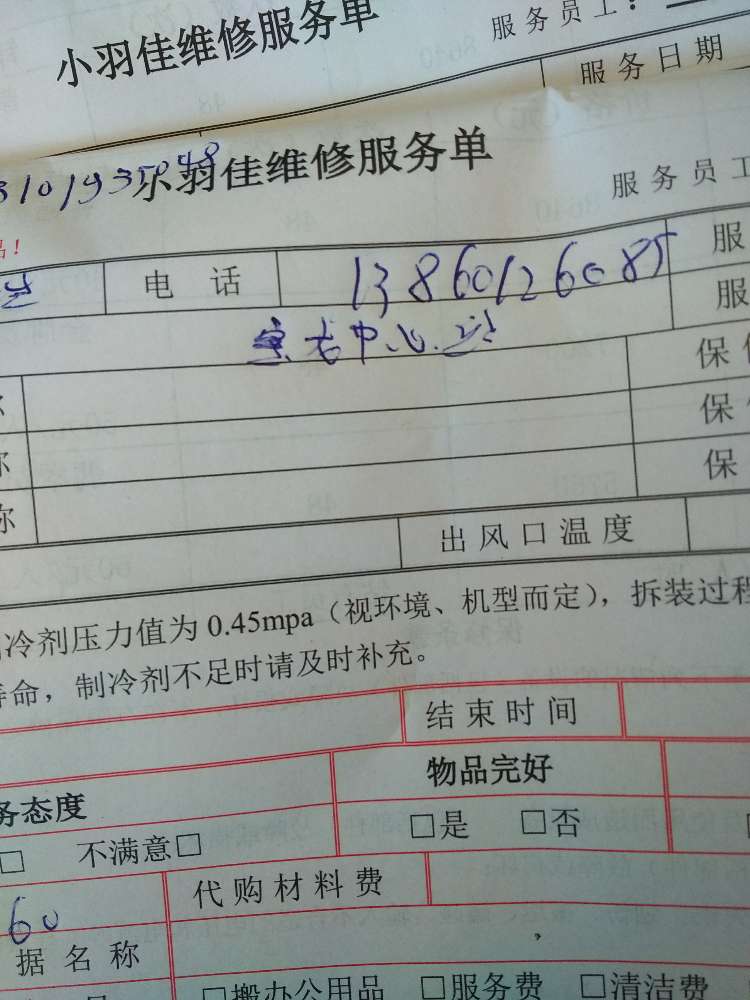 小羽佳维修服务单
服务员工：
服务日期
小羽佳维修服务单
服务员工
品！
电话 13860126085 服
中心 服
称 保
称 保
称 保
出风口温度
冷剂压力值为 0.45mpa（视环境、机型而定），拆装过程
寿命，制冷剂不足时请及时补充。
结束时间
务态度 物品完好
□ 不满意□ □是 □否
60 代购材料费
据名称
□搬办公用品 □服务费 □清洁费